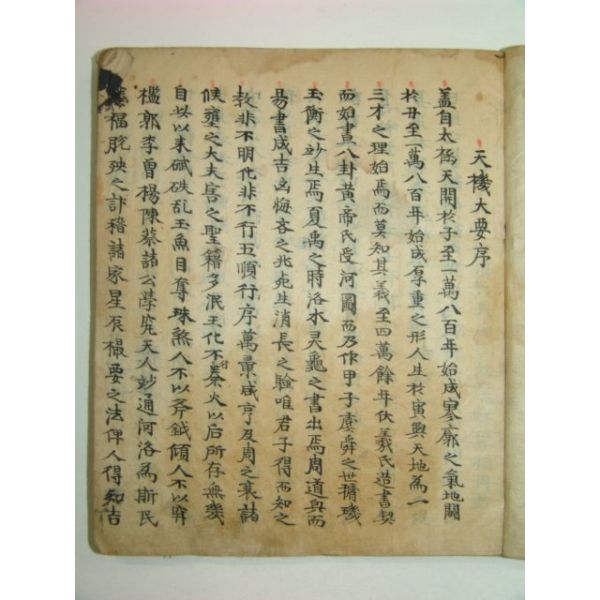 天機大要序
盖自太極天開於子至一萬八百年始成寥廓之氣地闢
於丑至一萬八百年始成厚重之形人生於寅與天地為一
三才之理始焉而莫知其義至四萬餘年伏羲氏造書契
而始畫八卦黃帝氏受河圖而乃作甲子虞舜之世璿璣
玉衡之妙生焉夏禹之時洛水灵龜之書出焉周道興而
易書成吉凶悔吝之兆先生消長之驗唯君子得而知之
教非不明化非不行五順行序萬彙咸亨及周之衰諸
侯壅之大夫害之聖籍多泯王化不分秦火以后所存無幾
自以以来碔砆乱玉魚目奪珠煞人不以斧鉞傾人不以穽
檻郭李曾楊陳蔡諸公學究天人妙通河洛為斯民
福脫殃之計稽諸家星辰撮要之法俾人得知吉